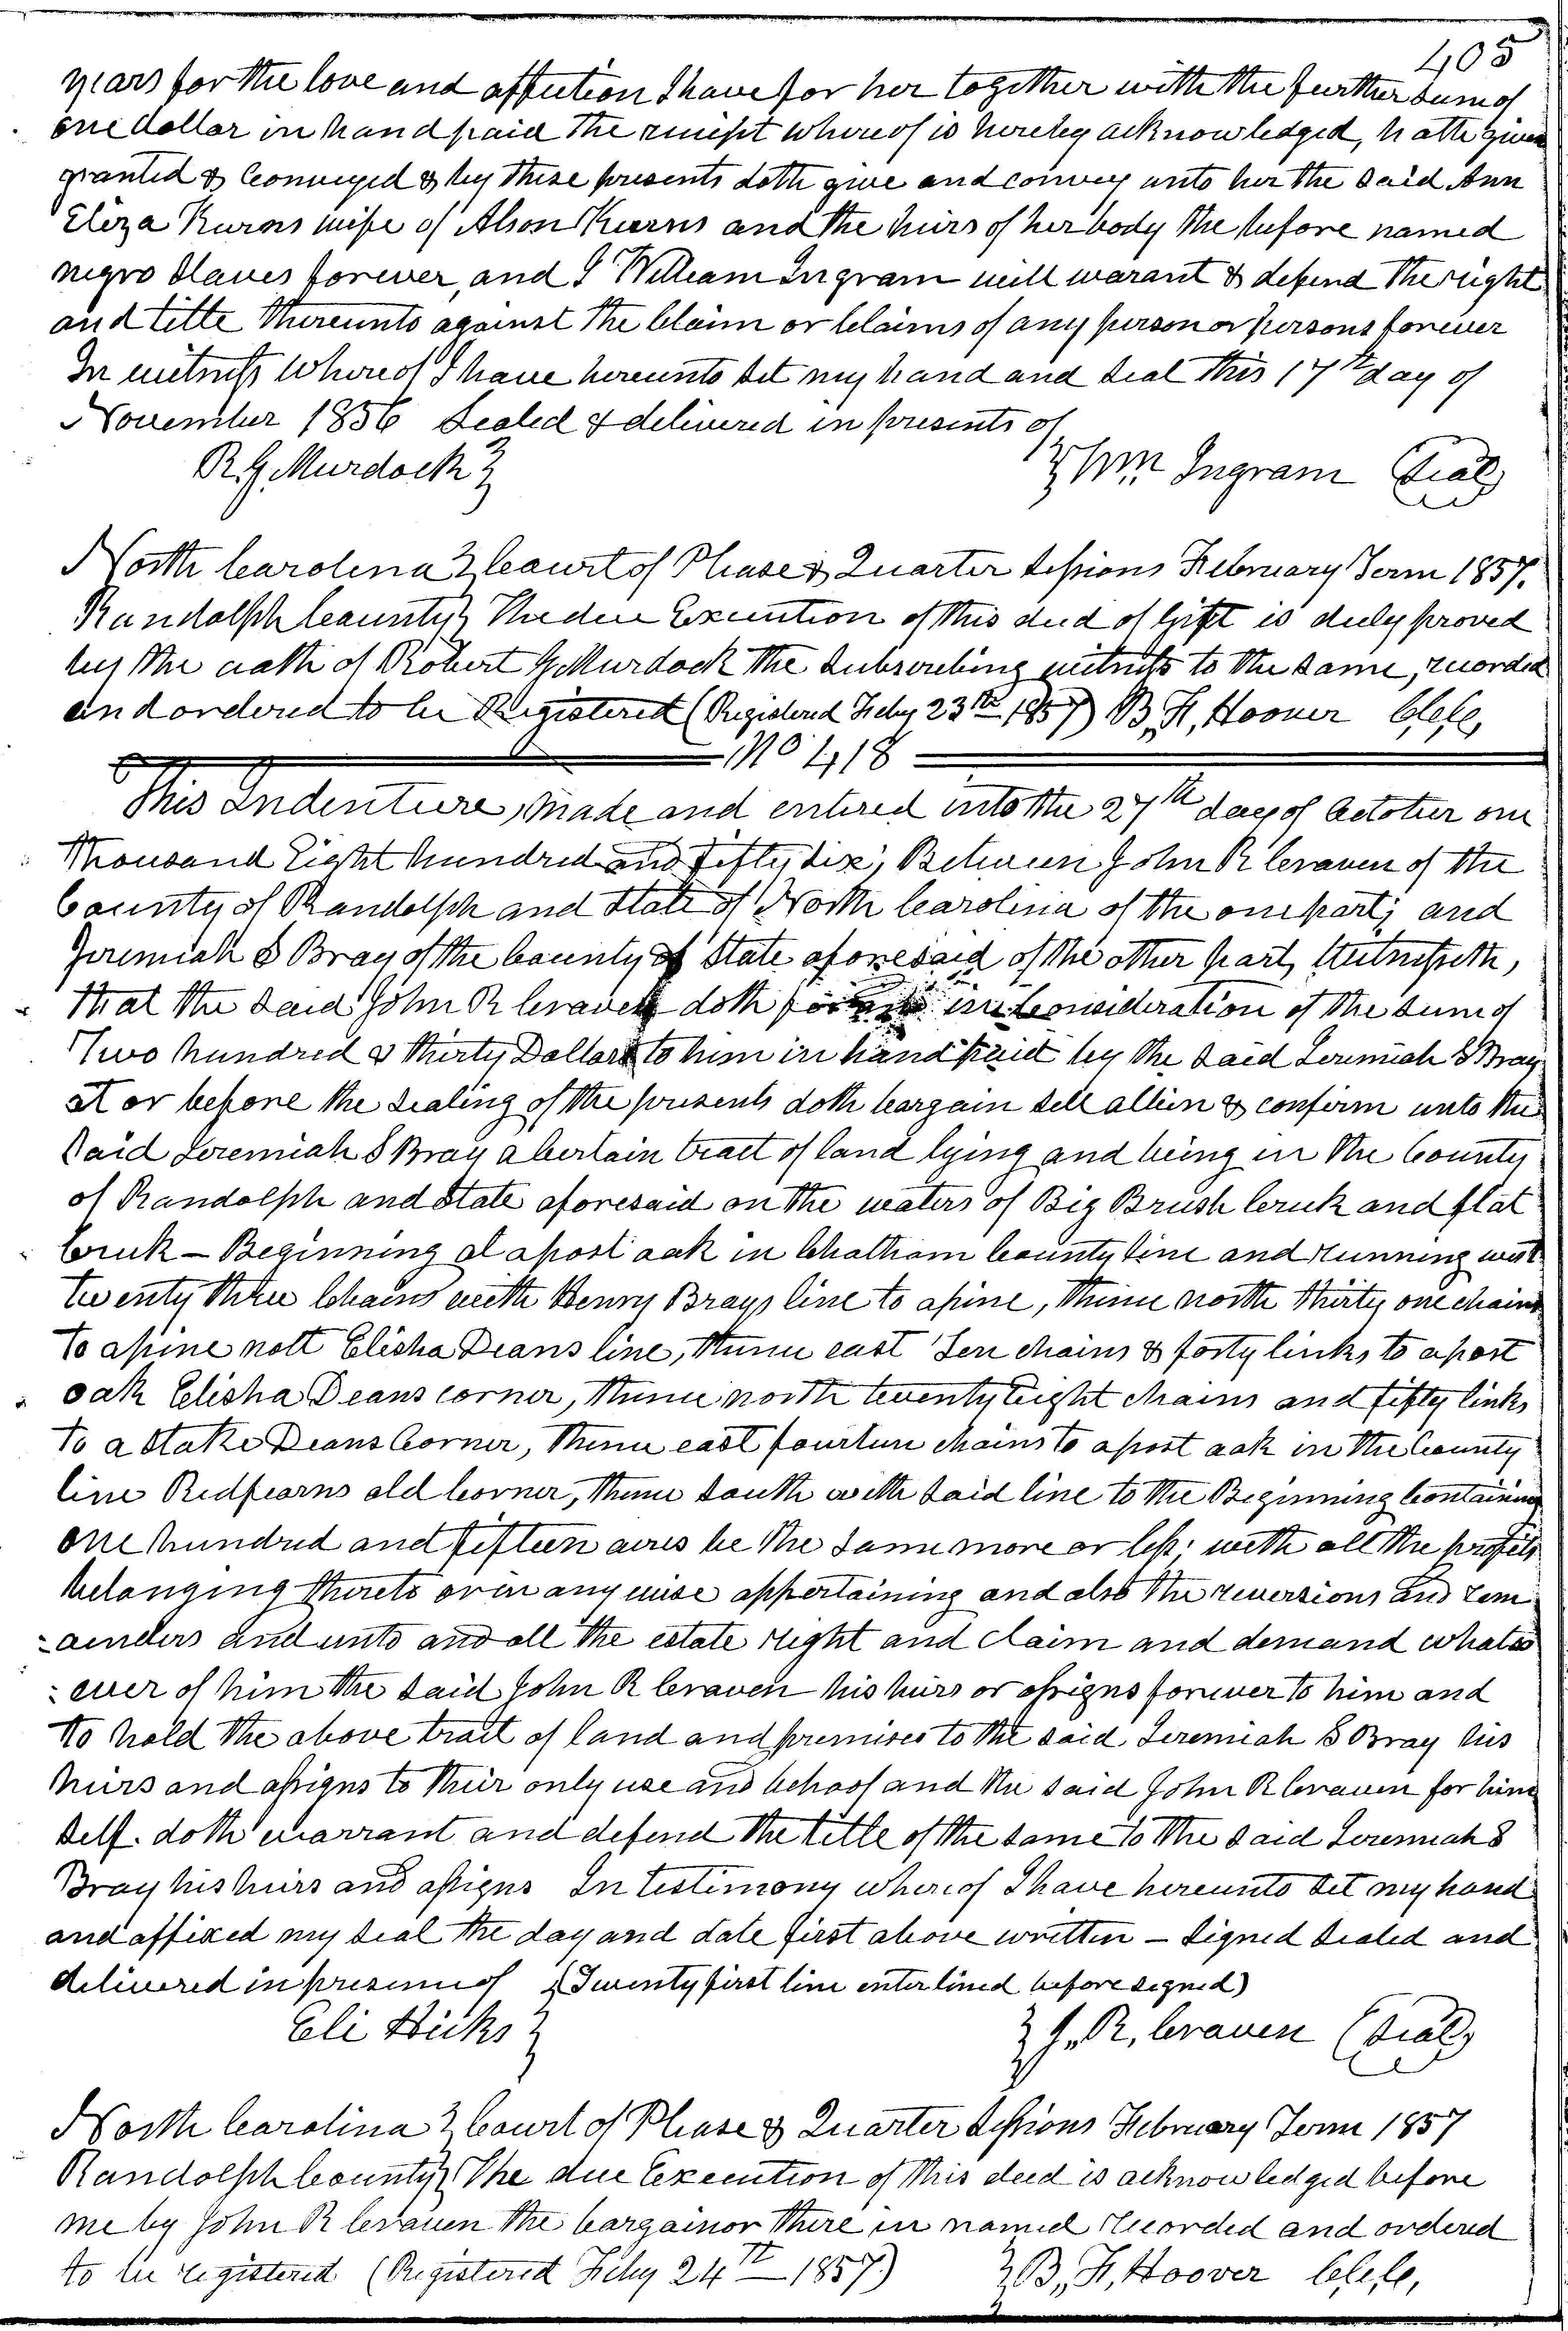 405
years for the love and affection I have for her together with the further sum of
one dollar in hand paid the receipt whereof is hereby acknowledged, hath given
granted & Conveyed & by these presents doth give and convey unto her the said Ann
Eliza Kurns wife of Alson Kurns and the heirs of her body the before named
negro slaves forever, and I William Ingram will warant & defend the right
and title thereunto against the Claim or Claims of any person or persons forever
In witness whereof I have hereunto set my hand and seal this 17th day of
November 1856 Sealed & delivered in presents of
R. G. Murdock } } Wm Ingram (Seal)
North Carolina } Court of Pleas & Quarter Sessions February Term 1857.
Randolph County } The due Execution of this deed of Gift is duly proved
by the oath of Robert G Murdock the Subscribing witness to the same, recorded
and ordered to be Registered (Registered Feby 23rd 1857) B. F. Hoover C.C.C.
No 418
This Indenture, made and entered into the 27th day of October one
Thousand Eight hundred and fifty six, Between John R Craven of the
County of Randolph and State of North Carolina of the one part; and
Jeremiah S Bray of the County & State aforesaid of the other part, Witnesseth,
that the said John R Craven doth for and in Consideration of the sum of
Two hundred & thirty Dollars to him in hand paid by the said Jeremiah S Bray
at or before the sealing of the presents doth bargain sell alien & confirm unto the
said Jeremiah S Bray a Certain tract of land lying and being in the County
of Randolph and State aforesaid on the waters of Big Brush Creek and flat
Creek – Beginning at a post oak in Chatham County line and running west
twenty three Chains with Henry Brays line to a pine, thence north thirty one chains
to a pine nott Elisha Deans line, thence east Ten chains & forty links to a post
oak Elisha Deans corner, thence north twenty eight chains and fifty links
to a Stake Deans Corner, thence east fourteen chains to a post oak in the County
line Redfearns old Corner, thence South with said line to the Beginning Containing
one hundred and fifteen acres be the same more or less; with all the profits
belonging thereto or in any wise appertaining and also the reversions and rem
-ainders and unto and all the estate right and claim and demand whatso
-ever of him the said John R Craven his heirs or assigns forever to him and
to hold the above tract of land and premises to the said Jeremiah S Bray his
heirs and assigns to their only use and behoof and the said John R Craven for him
self. doth warrant and defend the title of the same to the said Jeremiah S
Bray his heirs and assigns In testimony whereof I have hereunto set my hand
and affixed my seal the day and date first above written – Signed Sealed and
delivered in presence of (Twenty first line enterlined before signed)
Eli Hicks } } J. R. Craven (Seal)
North Carolina } Court of Pleas & Quarter Sessions February Term 1857
Randolph County } The due Execution of this deed is acknowledged before
me by John R Craven the bargainor there in named Recorded and ordered
to be registered (Registered Feby 24th 1857.) } B. F. Hoover C.C.C.